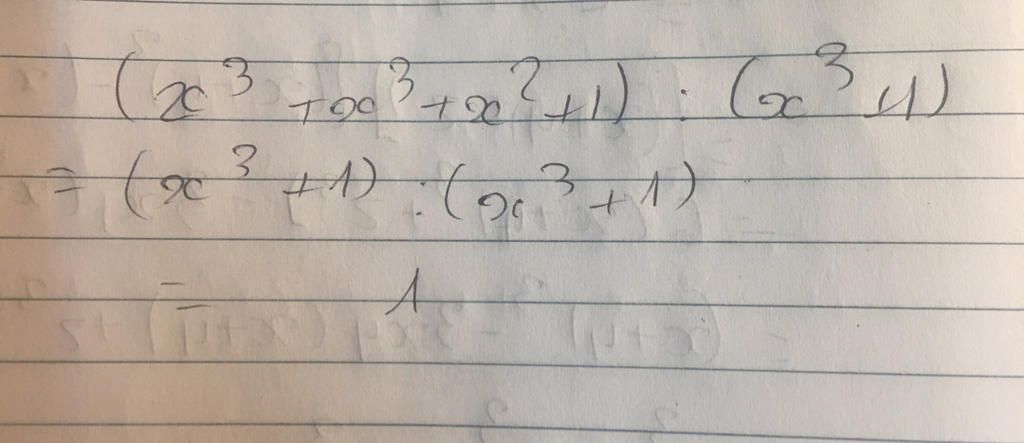 (x³ + x³ + x² + 1) : (x³ + 1)
= (x³ + 1) : (x³ + 1)
= 1